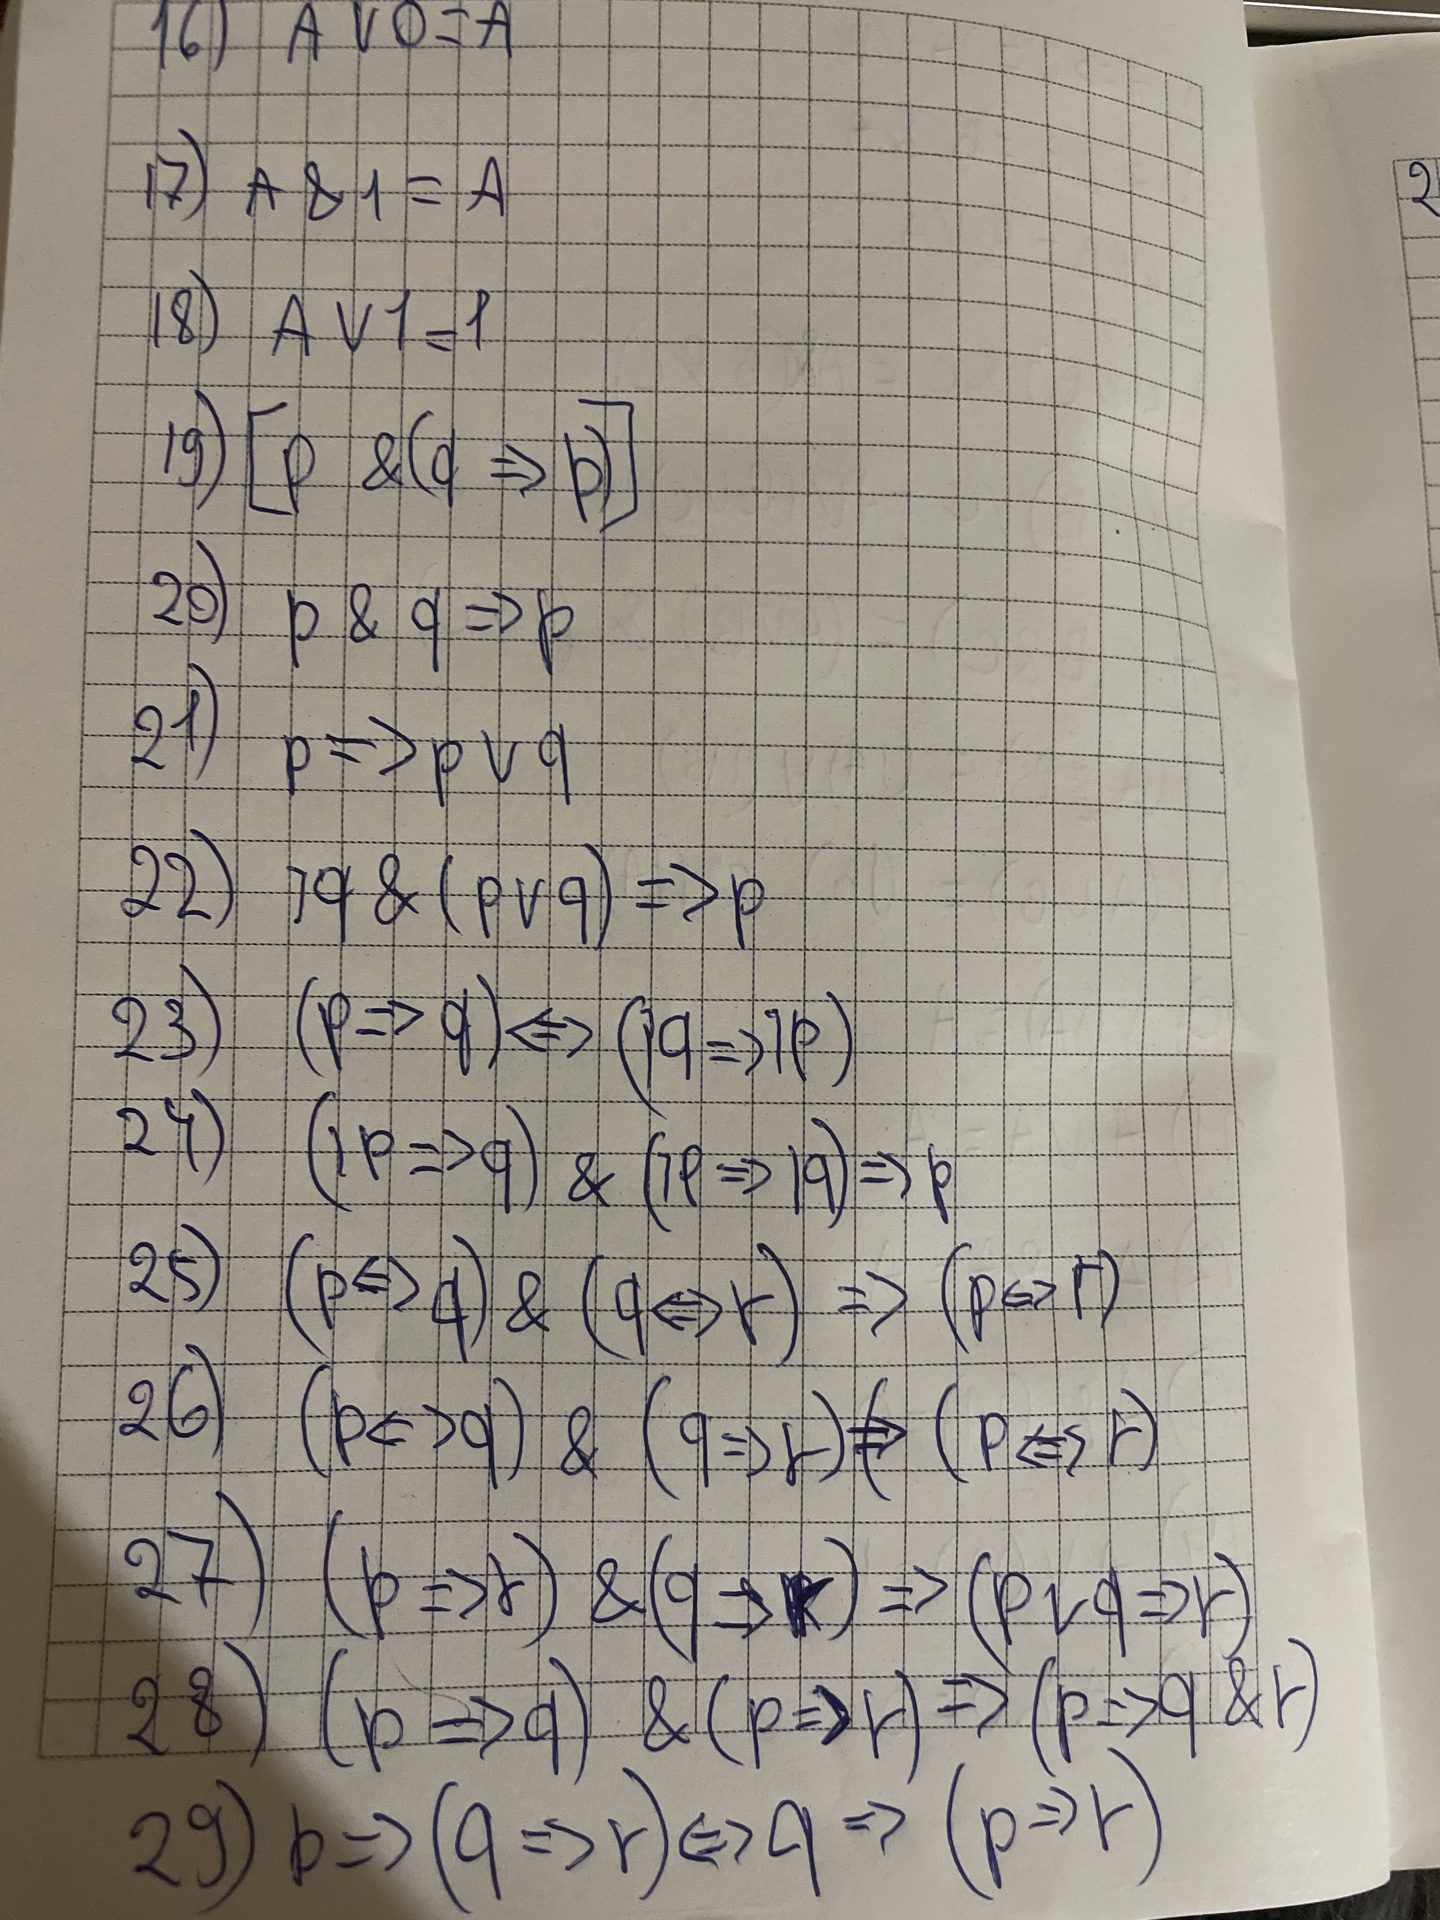 16) A V 0 = A
17) A & 1 = A
18) A V 1 = 1
19) [p & (q => p)]
20) p & q => p
21) p => p v q
22) ¬q & (p v q) => p
23) (p => q) <=> (¬q => ¬p)
24) (¬p => q) & (¬p => ¬q) => p
25) (p <=> q) & (q <=> r) => (p <=> r)
26) (p <=> q) & (q => r) => (p <=> r)
27) (p => r) & (q => r) => (p v q => r)
28) (p => q) & (p => r) => (p => q & r)
29) p => (q => r) <=> q => (p => r)
2